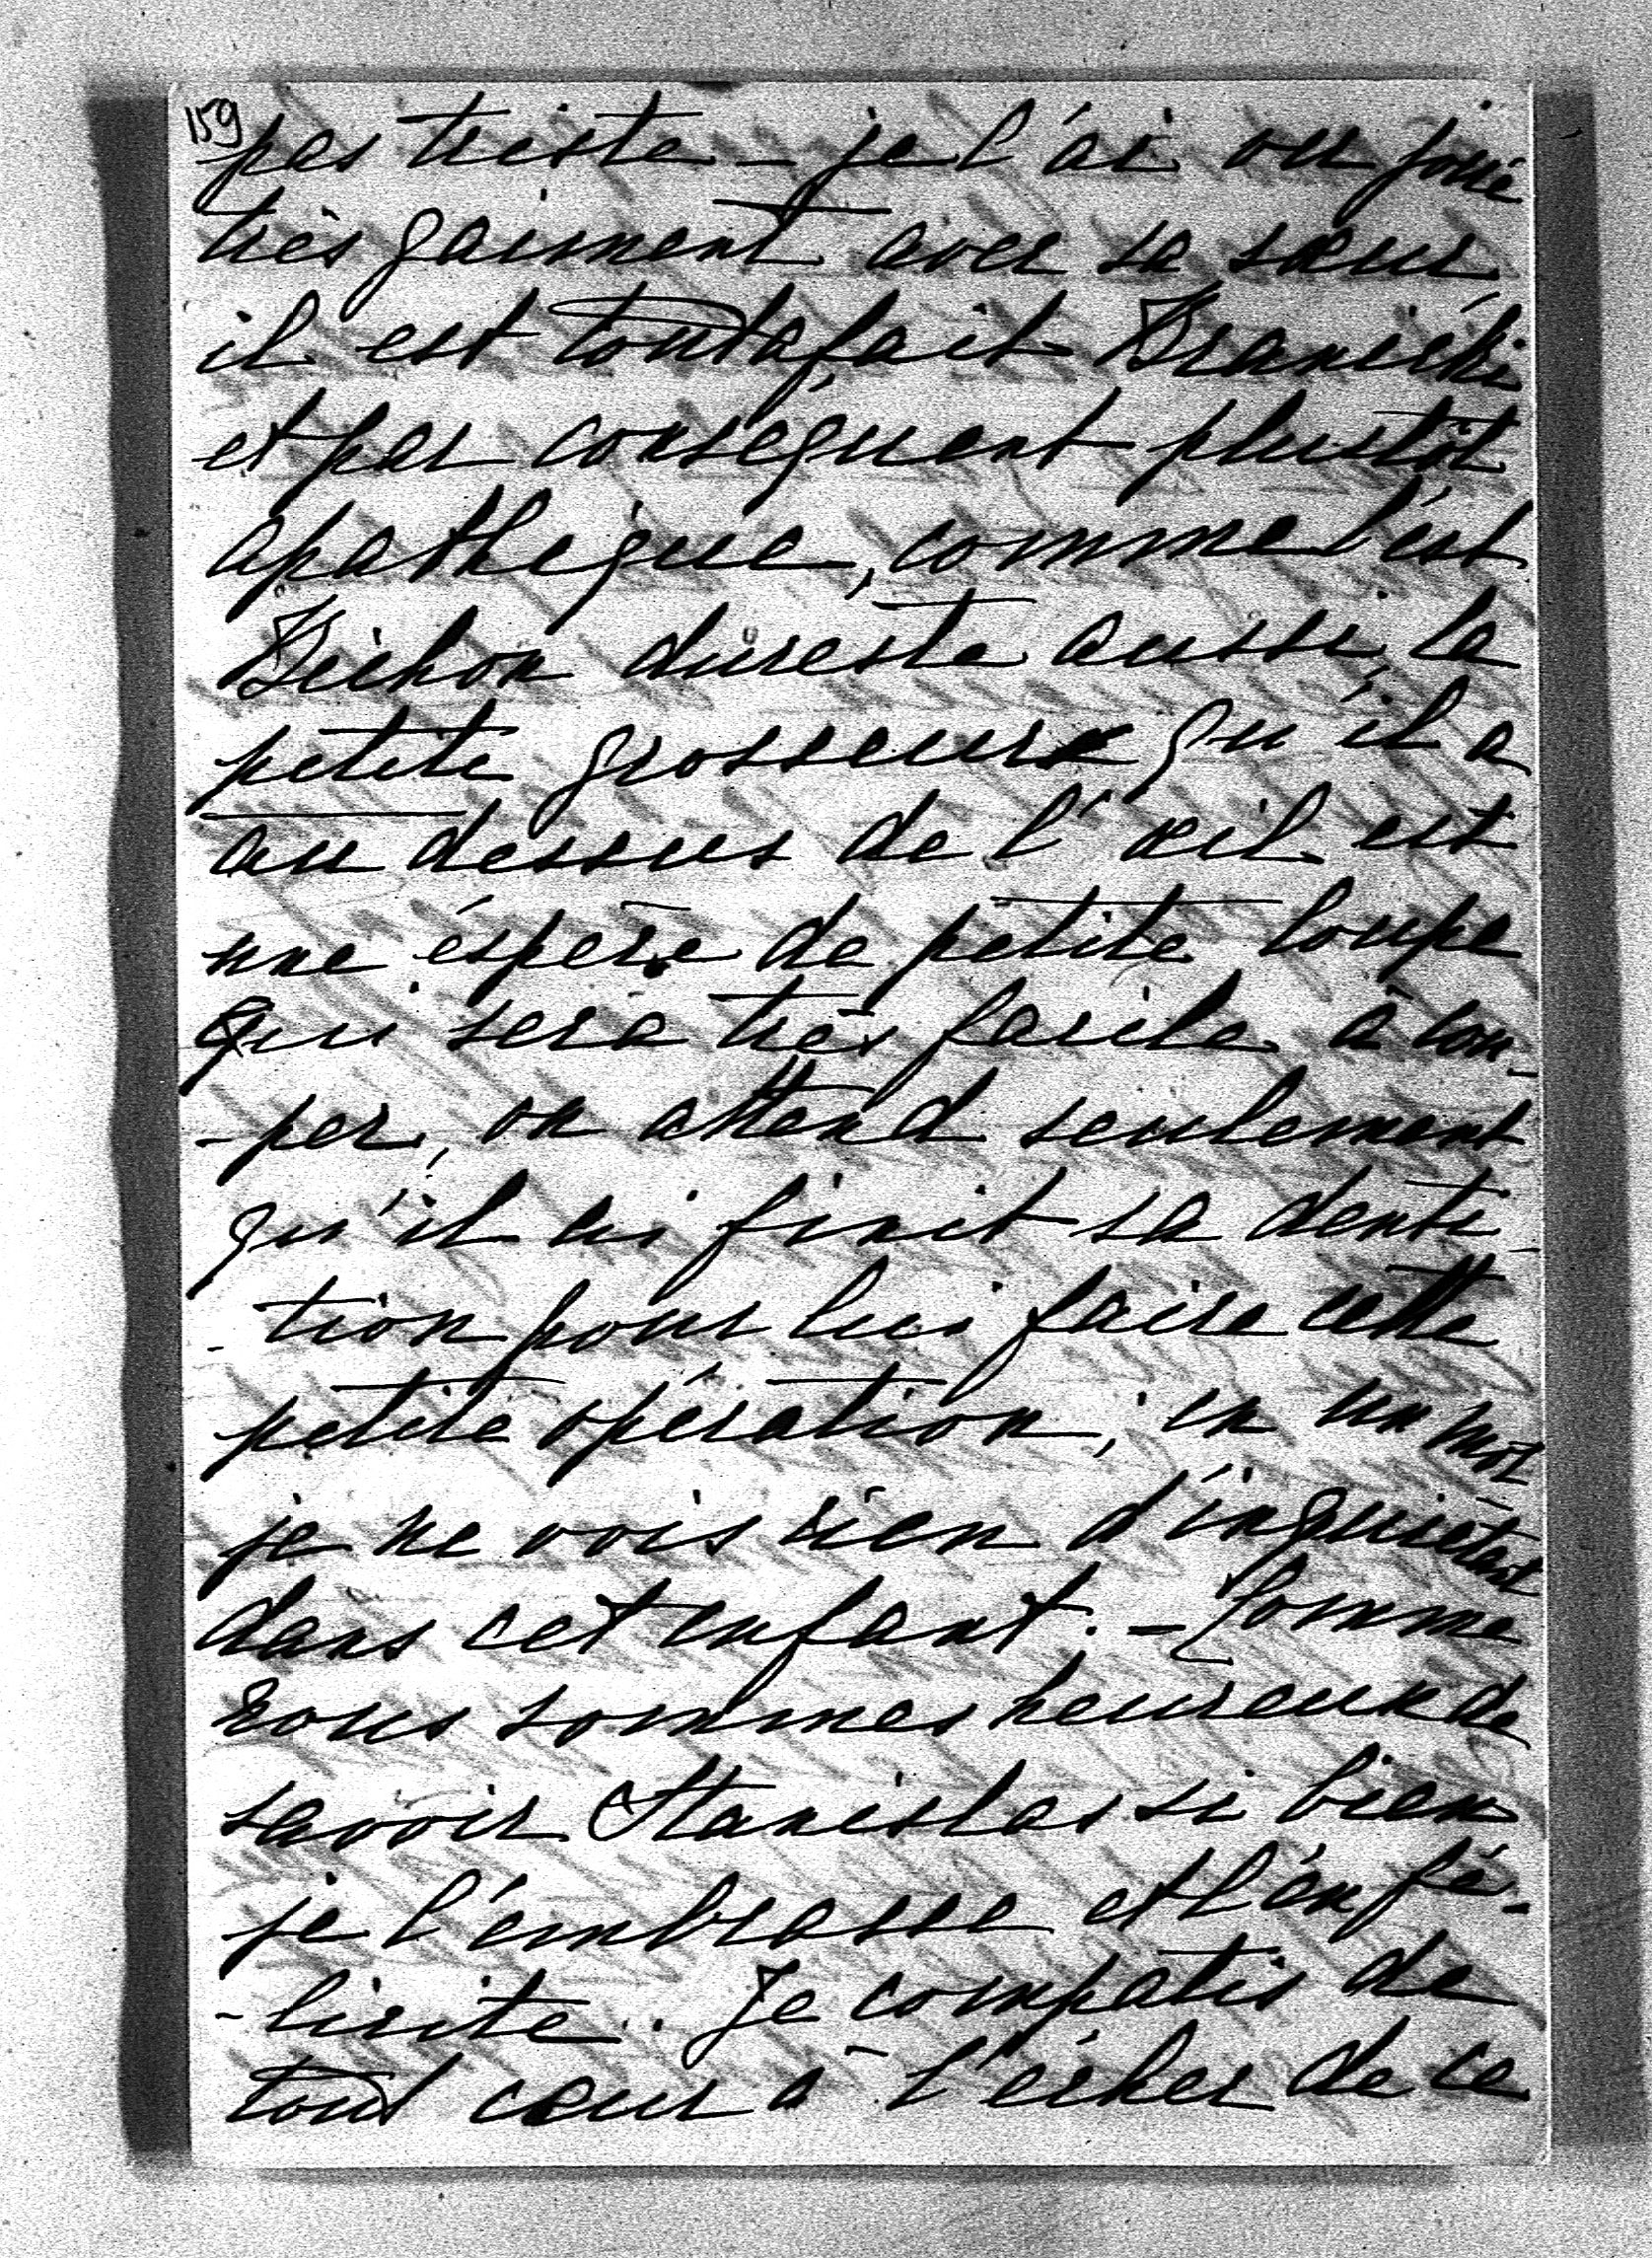 159
pas triste – je l'ai vu joué
très gaiment avec sa sœur
il est toutafait Branicki
et par conséguent plustôt
apathique, comme l'est
Bichon dureste aussi, la
petite grosseur qu'il a
au dessus de l'œil est
une éspèce de petite loupe
qui sera très facile à cou-
-per, on attend seulement
qu'il ai finit sa denti-
-tion pour lui faire cette
petite opération; en un mot
je ne vois rien d'inquiétant
dans cet enfant. – Comme
nous sommes heureux de
savoir Stanislas si bien
je l'embrasse et l'en fé-
-licite.. Je compatis de
tout cœur à l'échec de ce